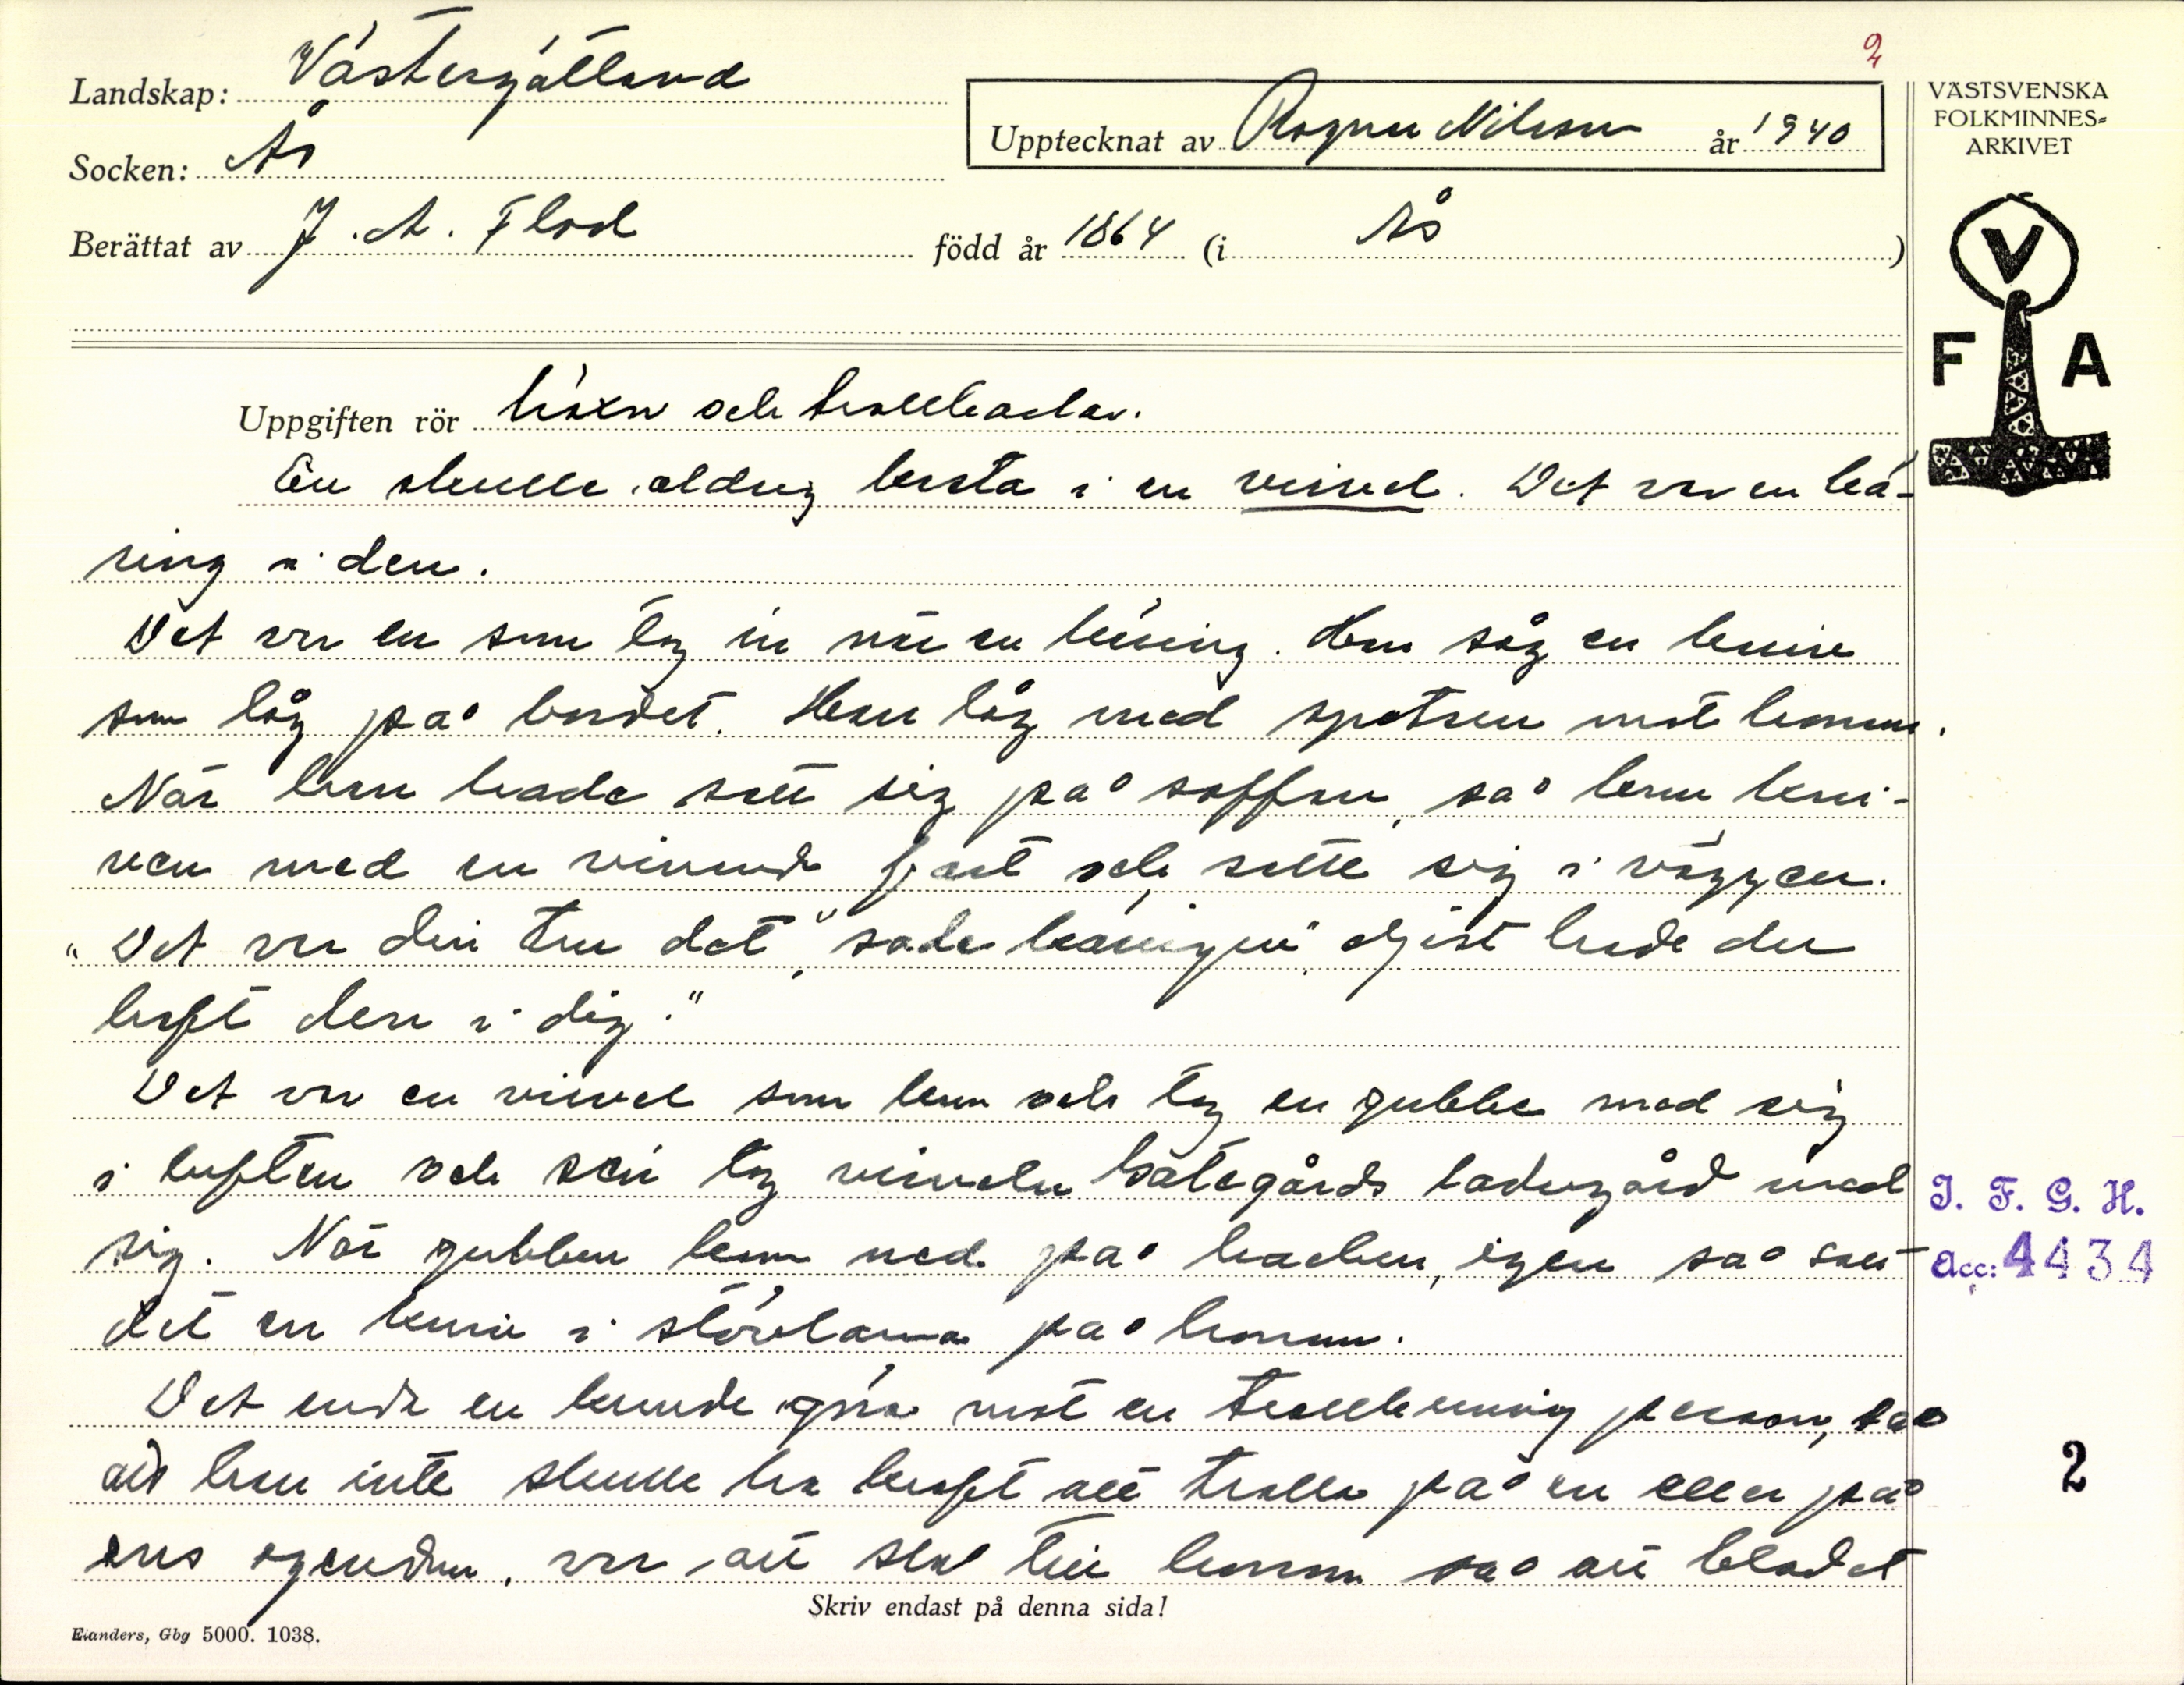 2
Landskap: Västergötland
Socken: Ås
Berättat av J. A. Flod född år 1864 (i Ås)
Upptecknat av Ragnar Nilsson år 1940
VÄSTSVENSKA
FOLKMINNES-
ARKIVET
V
F A
Uppgiften rör häxor och trollkarlar.
En skulle aldrig kasta i en virvel. Det var en kä-
ring i den.
Det var en som tog in när en käring. Han såg en kniv
som låg på bordet. Den låg med spetsen mot honom.
När han hade satt sig på soffan, så kom kni-
ven med en vinande fart och satte sig i väggen.
"Det var din tur det", sade käringen, "Ajist hade du
haft den i dig."
Det var en virvel som kom och tog en gubbe med sig
i luften och sen tog virveln Sätegårds ladugård med
sig. När gubben kom ned på backen, igen så satt
det en kniv i stövlarna på honom.
Det enda en kunde göra mot en trollkunnig person, så
att han inte skulle ha kraft att trolla på en eller på
ens egendom, var att slå till honom så att blodet
Skriv endast på denna sida!
Elanders, Gbg 5000. 1038.
I. F. G. H.
Acc: 4434
2